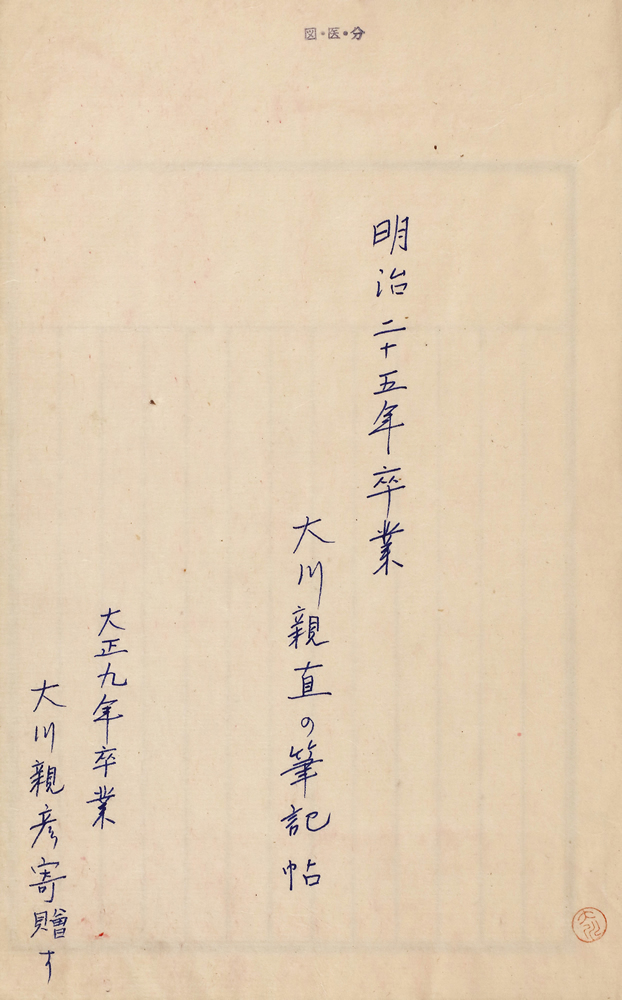 図・医・分
明治二十五年卒業
大川親直の筆記帖
大正九年卒業
大川親彦寄贈す
大川